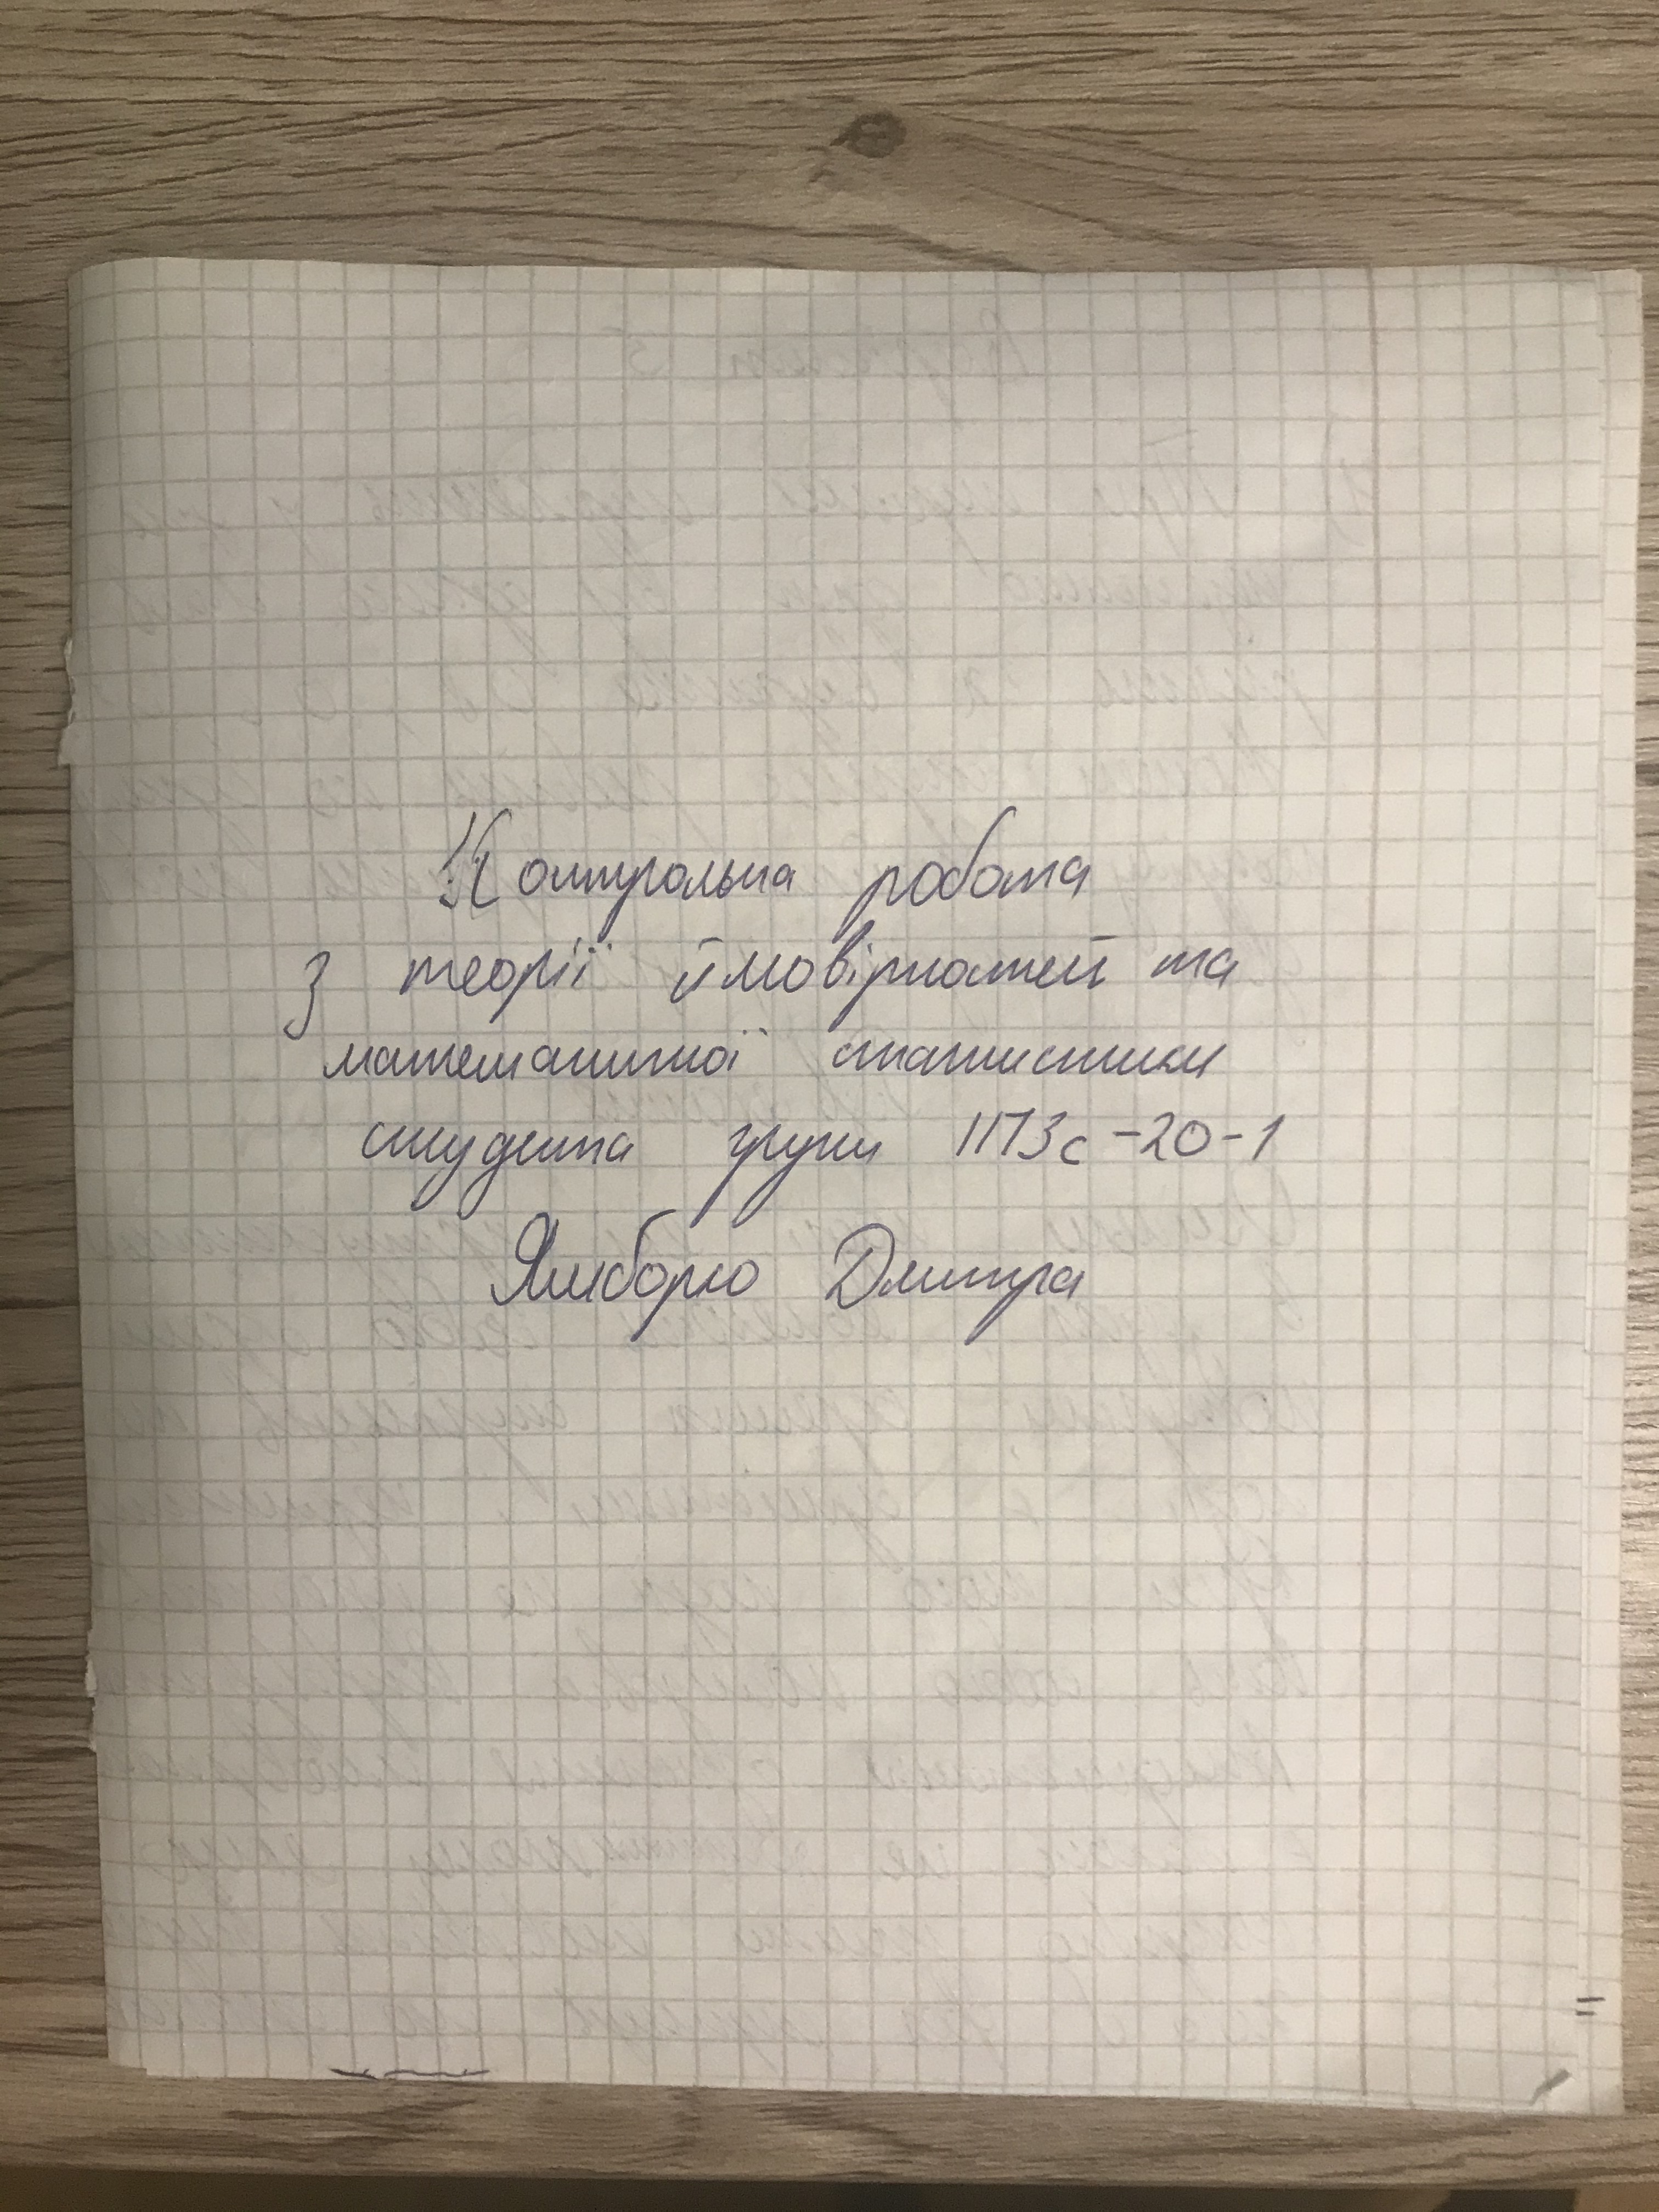 Контрольна робота
з теорії ймовірностей та
математичної статистики
студента групи ІПЗс-20-1
Дмитра